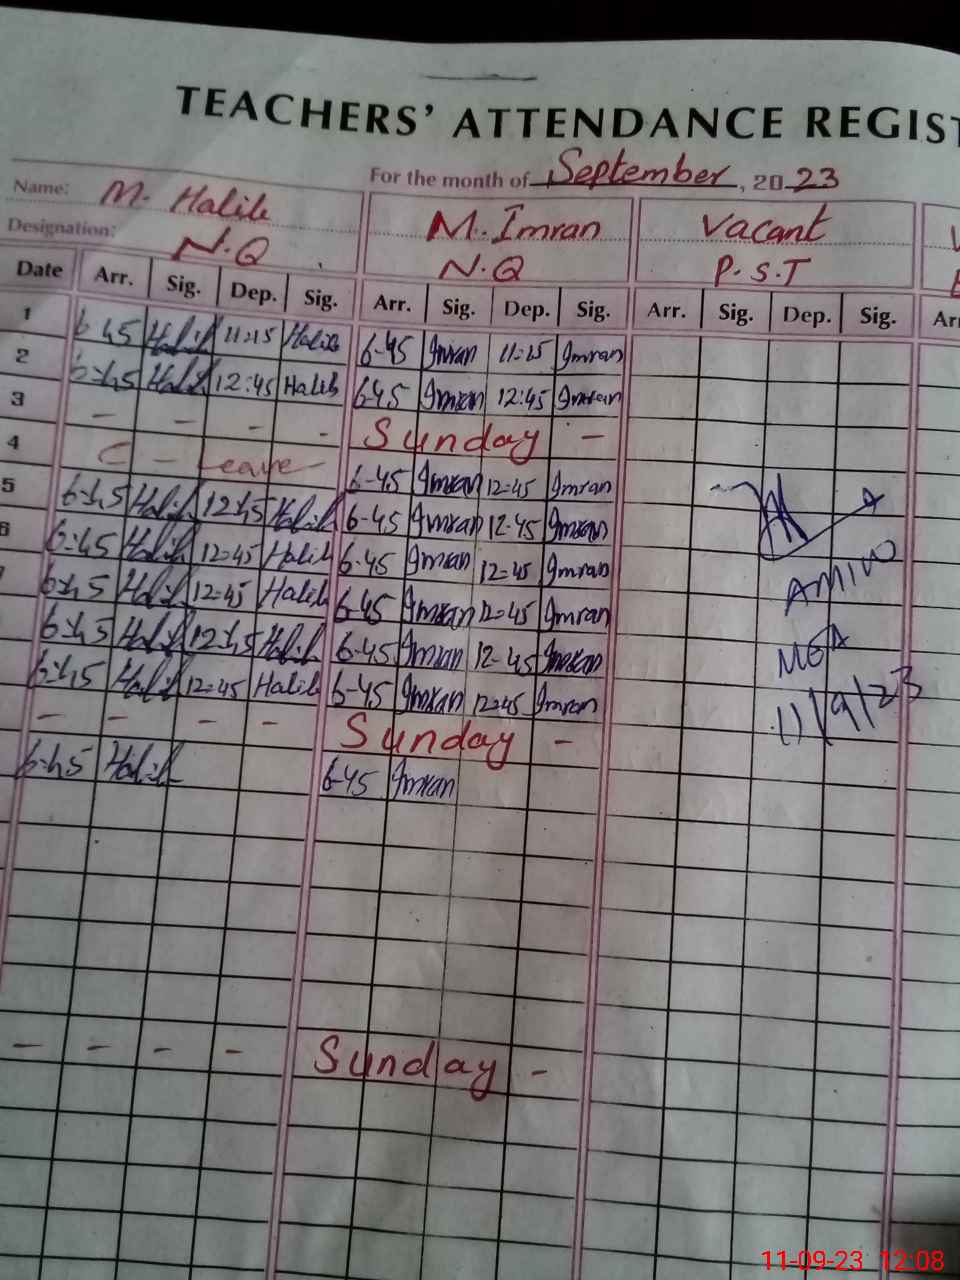 TEACHERS' ATTENDANCE REGIST
For the month of September, 2023
Name: M. Halib M. Imran Vacant
Designation: N.Q N.Q P.S.T
Date Arr. Sig. Dep. Sig. Arr. Sig. Dep. Sig. Arr. Sig. Dep. Sig. Arr
1 6-45 Halib 11:15 Halib 6-45 Imran 11-15 Imran
2 6:45 Halib 12:45 Halib 6-45 Imran 12:45 Imran
3 - - - - Sunday -
4 C - Leave - 6-45 Imran 12-45 Imran
5 6:45 Halib 12:45 Halib 6-45 Imran 12-45 Imran
6 6:45 Halib 12=45 Halib 6-45 Imran 12=45 Imran
6:45 Halib 12=45 Halib 6-45 Imran 12=45 Imran
6:45 Halib 12:45 Halib 6-45 Imran 12-45 Imran
6:45 Halib 12=45 Halib 6-45 Imran 12=45 Imran
- - - - Sunday -
6:45 Halib 6-45 Imran
- - - - Sunday -
AMIN
MEA
11/9/23
11-09-23 12:08